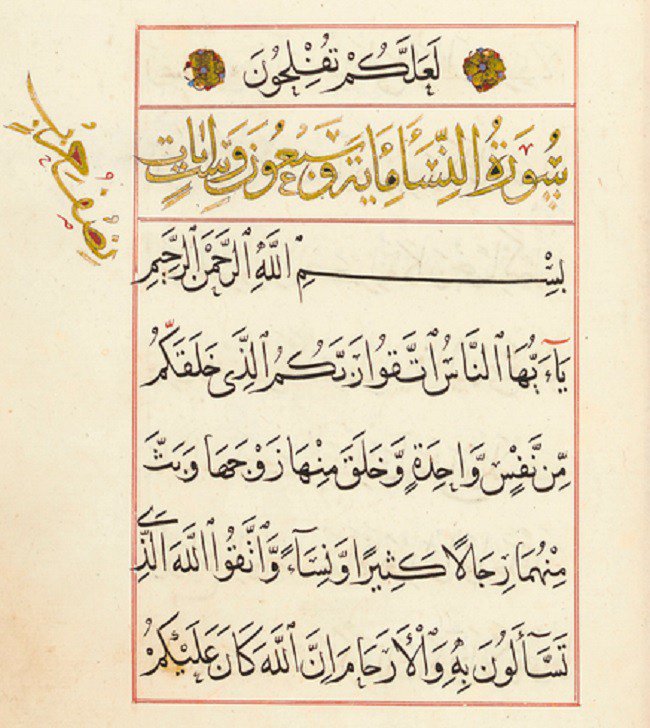 لَعَلَّكُمْ تُفْلِحُونَ
سُورَةُ النِّسَا مِايَة وَسَبْعُونَ وَسِت ايَات
بِسْمِ ٱللَّهِ ٱلرَّحْمَٰنِ ٱلرَّحِيمِ
يَآءَيُّهَا ٱلنَّاسُ ٱتَّقُوا رَبَّكُمُ ٱلَّذِى خَلَقَكُمْ
مِّن نَّفْسٍ وَّاحِدَةٍ وَّخَلَقَ مِنْهَا زَوْجَهَا وَبَثَّ
مِنْهُمَا رِجَالًا كَثِيرًا وَّنِسَآءً وَّٱتَّقُوا ٱللَّهَ ٱلَّذِى
تَسَّآءَلُونَ بِهِ وَٱلْأَرْحَامَ إِنَّ ٱللَّهَ كَانَ عَلَيْكُمْ
نصف حزب